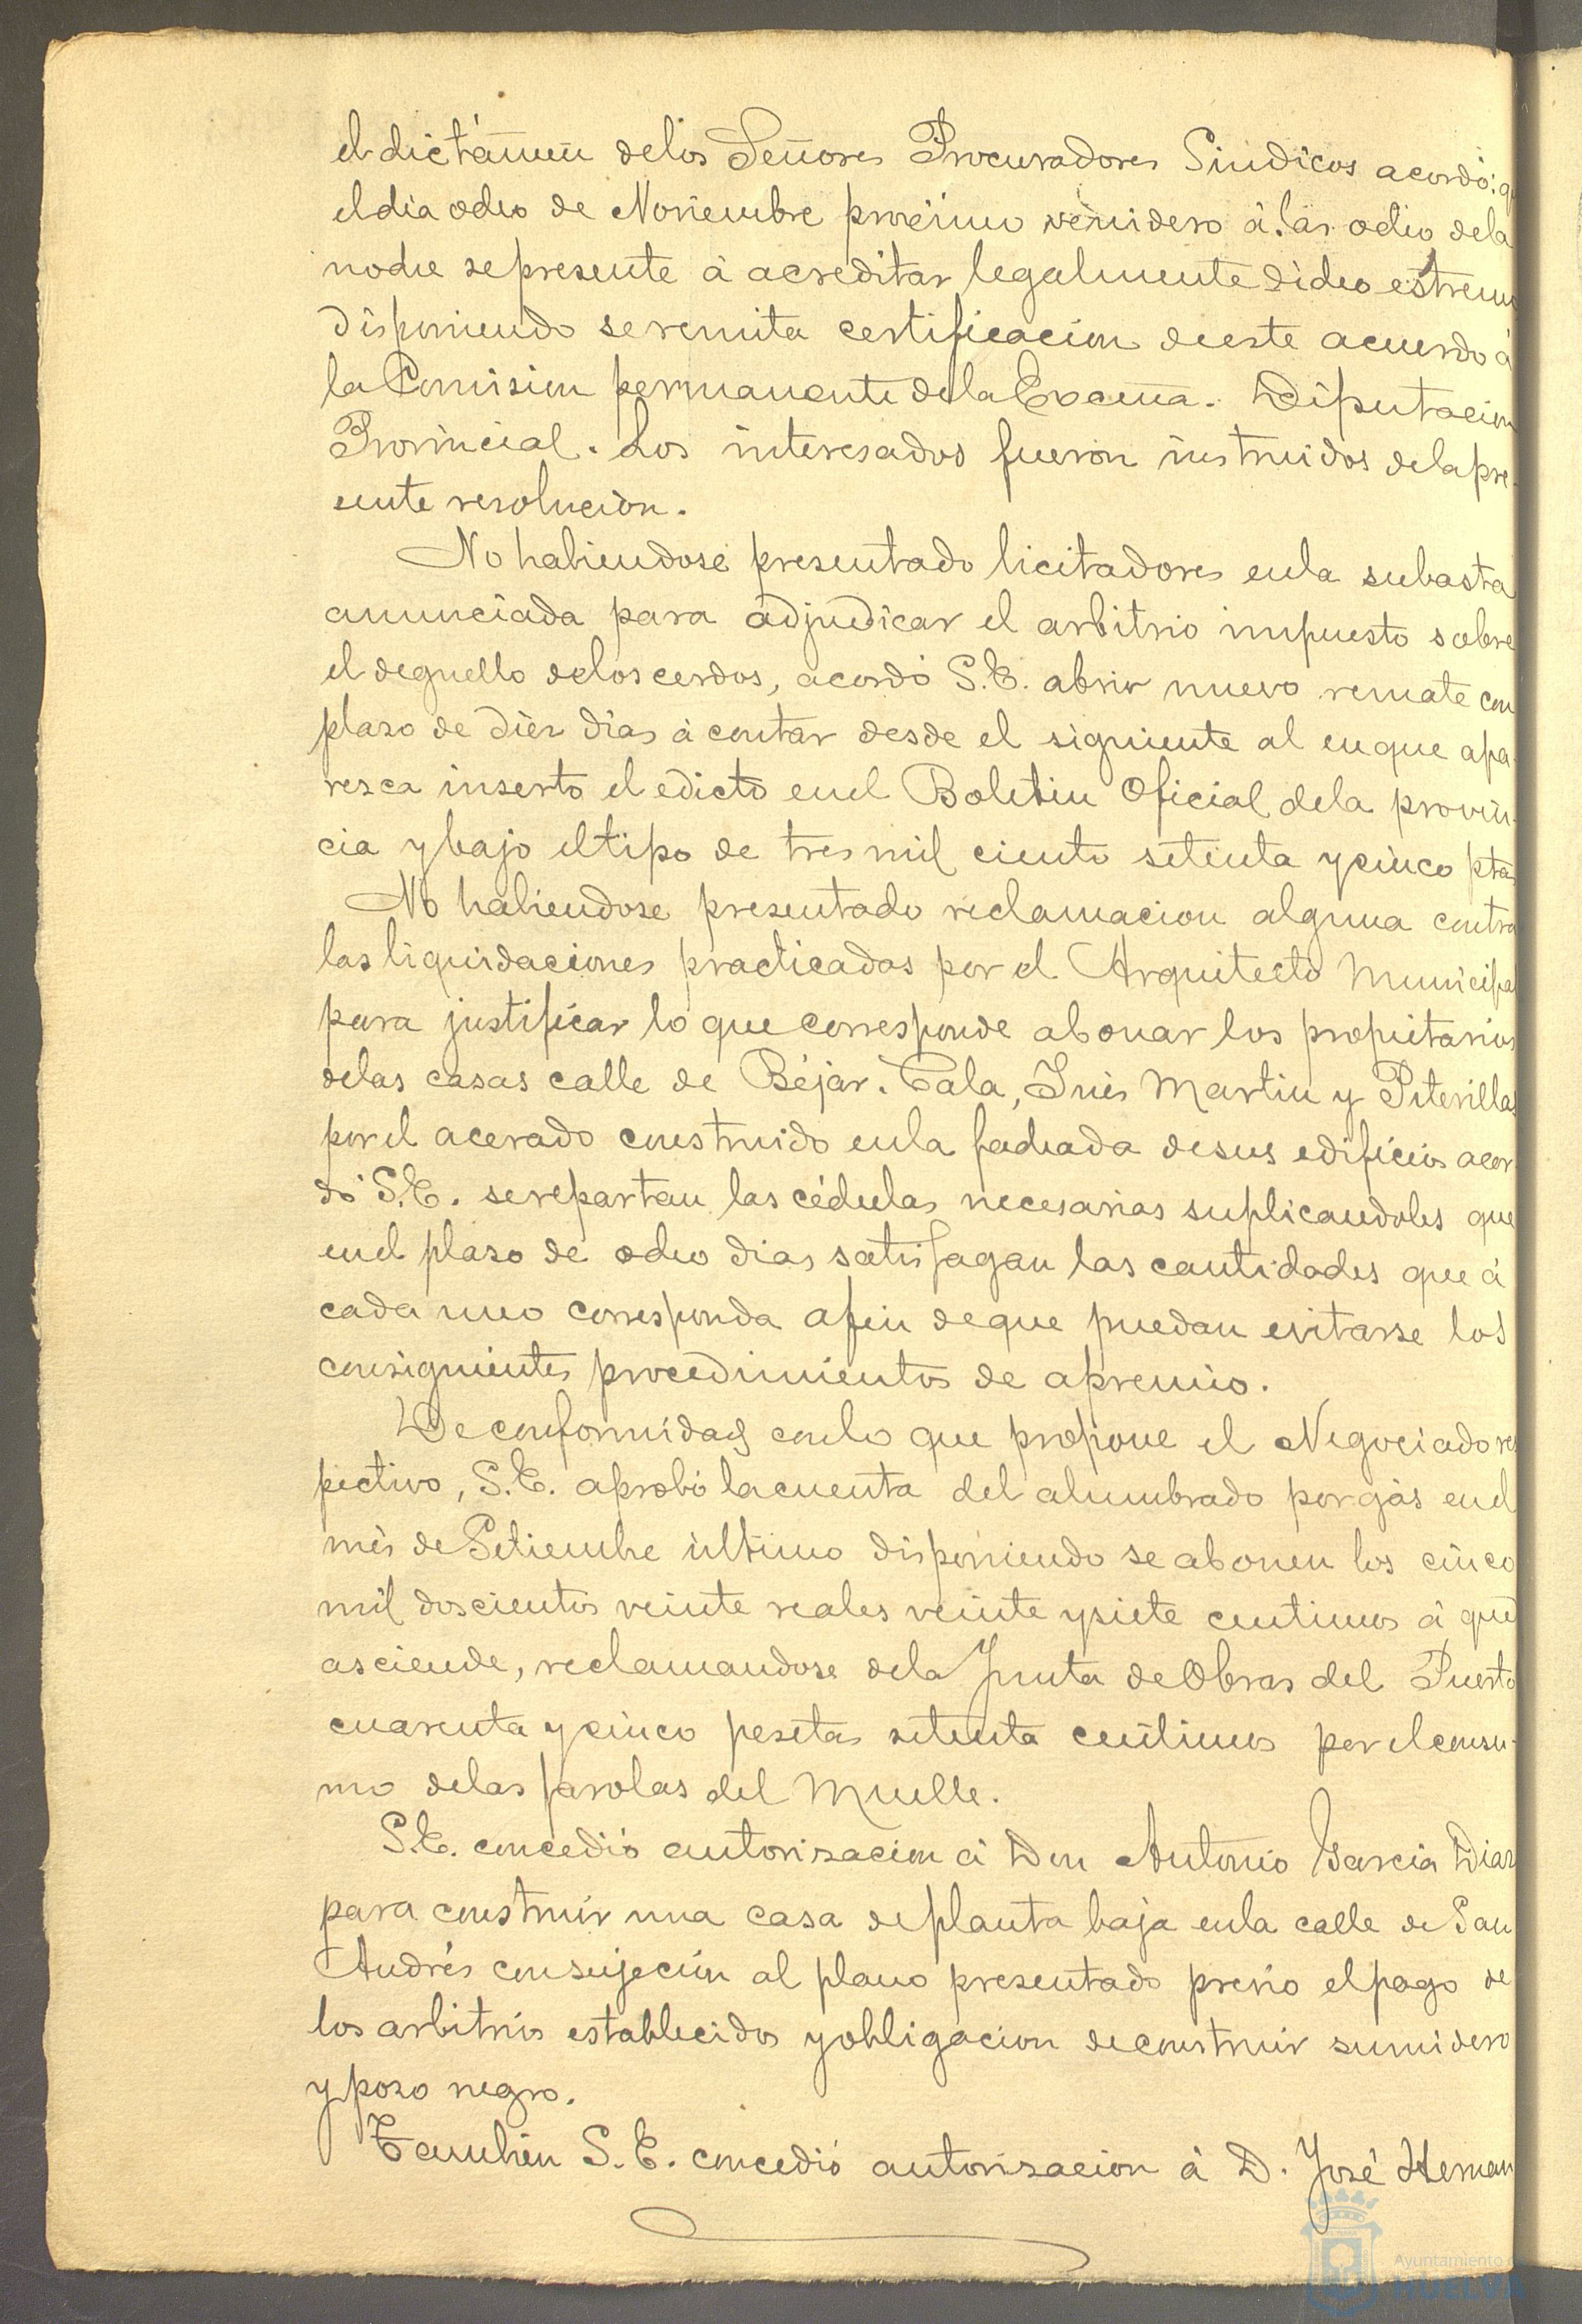 el dictámen delos Señores Procuradores Sindicos acordó: q
el dia ocho de Noviembre procsimo venidero á las ocho dela
noche sepresente á acreditar legalmente dicho estremo
disponiendo seremita certificacion deeste acuerdo á
la Comision permanente dela Excma. Diputacion
Provincial. Los interesados fueron instruidos dela pre-
sente resolucion.
No habiendose presentado licitadores enla subasta
anunciada para adjudicar el arbitrio impuesto sobre
el deguello deloscerdos, acordó S.E. abrir nuevo remate con
plazo de diez dias á contar desde el siguiente al enque apa-
rezca inserto el edicto enel Boletin Oficial dela provin-
cia y bajo eltipo de tres mil ciento setenta y cinco ptas
No habiendose presentado reclamacion alguna contra
las liquidaciones practicadas por el Arquitecto Municipal
para justificar lo que corresponde abonar los propietarios
delas casas calle de Béjar. Cala, Inés Martin y Piterillas
por el acerado construido enla fachada desus edificios acor-
dó S.E. serepartan las cédulas necesarias suplicandoles que
enel plazo de ocho dias satisfagan las cantidades que á
cada uno corresponda afin deque puedan evitarse los
consiguientes procedimientos de apremio.
De conformidad conlo que propone el Negociado res
pectivo, S.E. aprobó lacuenta del alumbrado porgás enel
més de Setiembre último disponiendo se abonen los cinco
mil doscientos veinte reales veinte ysiete centimos á que
asciende, reclamandose dela Junta deObras del Puerto
cuarenta y cinco pesetas setenta centimos por elconsu-
mo delas farolas del Muelle.
S.E. concedió autorizacion á Don Antonio Garcia Diaz
para construir una casa deplanta baja enla calle de San
Andrés consujecion al plano presentado prévio elpago de
los arbitrios establecidos yobligacion deconstruir sumidero
y pozo negro.
Tambien S.E. concedió autorizacion á D. José Hernan
Ayuntamiento d
HUELVA